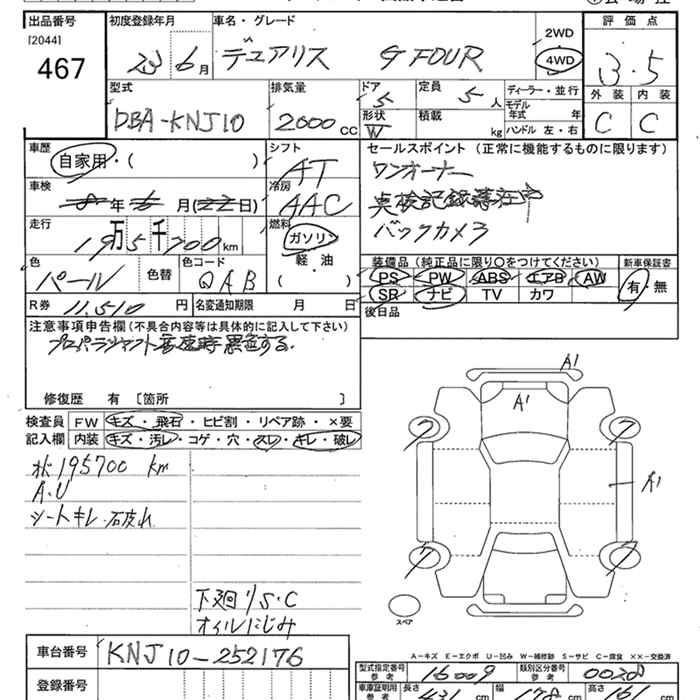 出品番号 初度登録年月 車名・グレード 評価点
[2044]
467
23年6月 デュアリス G FOUR 2WD 4WD 3.5
外装 内装
C C
型式 排気量 ドア 定員 ディーラー・並行
DBA-KNJ10 2000cc 5 5人
モデル年式 年
形状 積載 ハンドル 左・右
W kg
車歴 シフト セールスポイント (正常に機能するものに限ります)
自家用・( ) AT ワンオーナー
車検 冷房 点検記録簿在中
年 月( 日) AAC バックカメラ
走行 燃料
19万5千700km ガソリン
軽・油
( )
装備品 (純正品に限り○をつけてください) 新車保証書
PS PW ABS エアB AW 有・無
SR ナビ TV カワ
色 色替 色コード
パール QAB
R券 11,510円 名変通知期限 月 日 後日品
注意事項申告欄(不具合内容等は具体的に記入して下さい)
プロペラシャフト高速時異音する.
修復歴 有 [箇所 ]
検査員 FW キズ・飛石・ヒビ割・リペア跡・×要
記入欄 内装 キズ・汚レ・コゲ・穴・スレ・キレ・破レ
メ状 195700 km
A.U
シートキレ・破れ
下廻りS・C
オイルにじみ
A1
A1
A1
スペア
A-キズ E-エクボ U-凹み W-補修跡 S-サビ C-腐食 XX-交換済
車台番号 KNJ10-252176
型式指定番号 参考 16009 類別区分番号 参考 0020
登録番号
車庫証明用 参考 長さ 431cm 幅 178cm 高さ 161cm